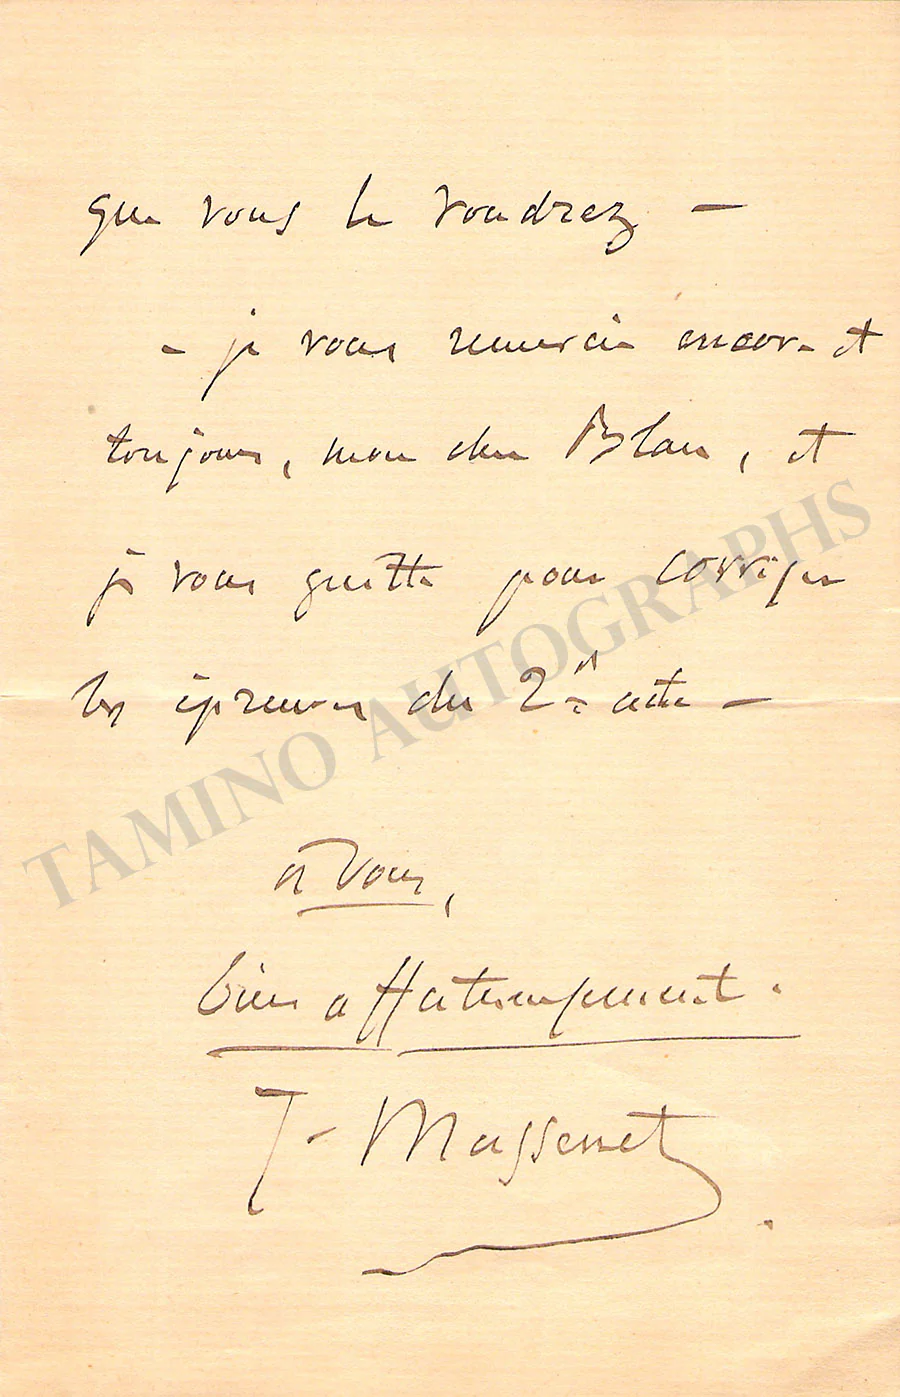 que vous le voudrez —
– je vous remercie encore et
toujours, mon cher Blau, et
je vous quitte pour corriger
les épreuves du 2e acte –
à vous,
bien affectueusement.
J. Massenet
TAMINO AUTOGRAPHS